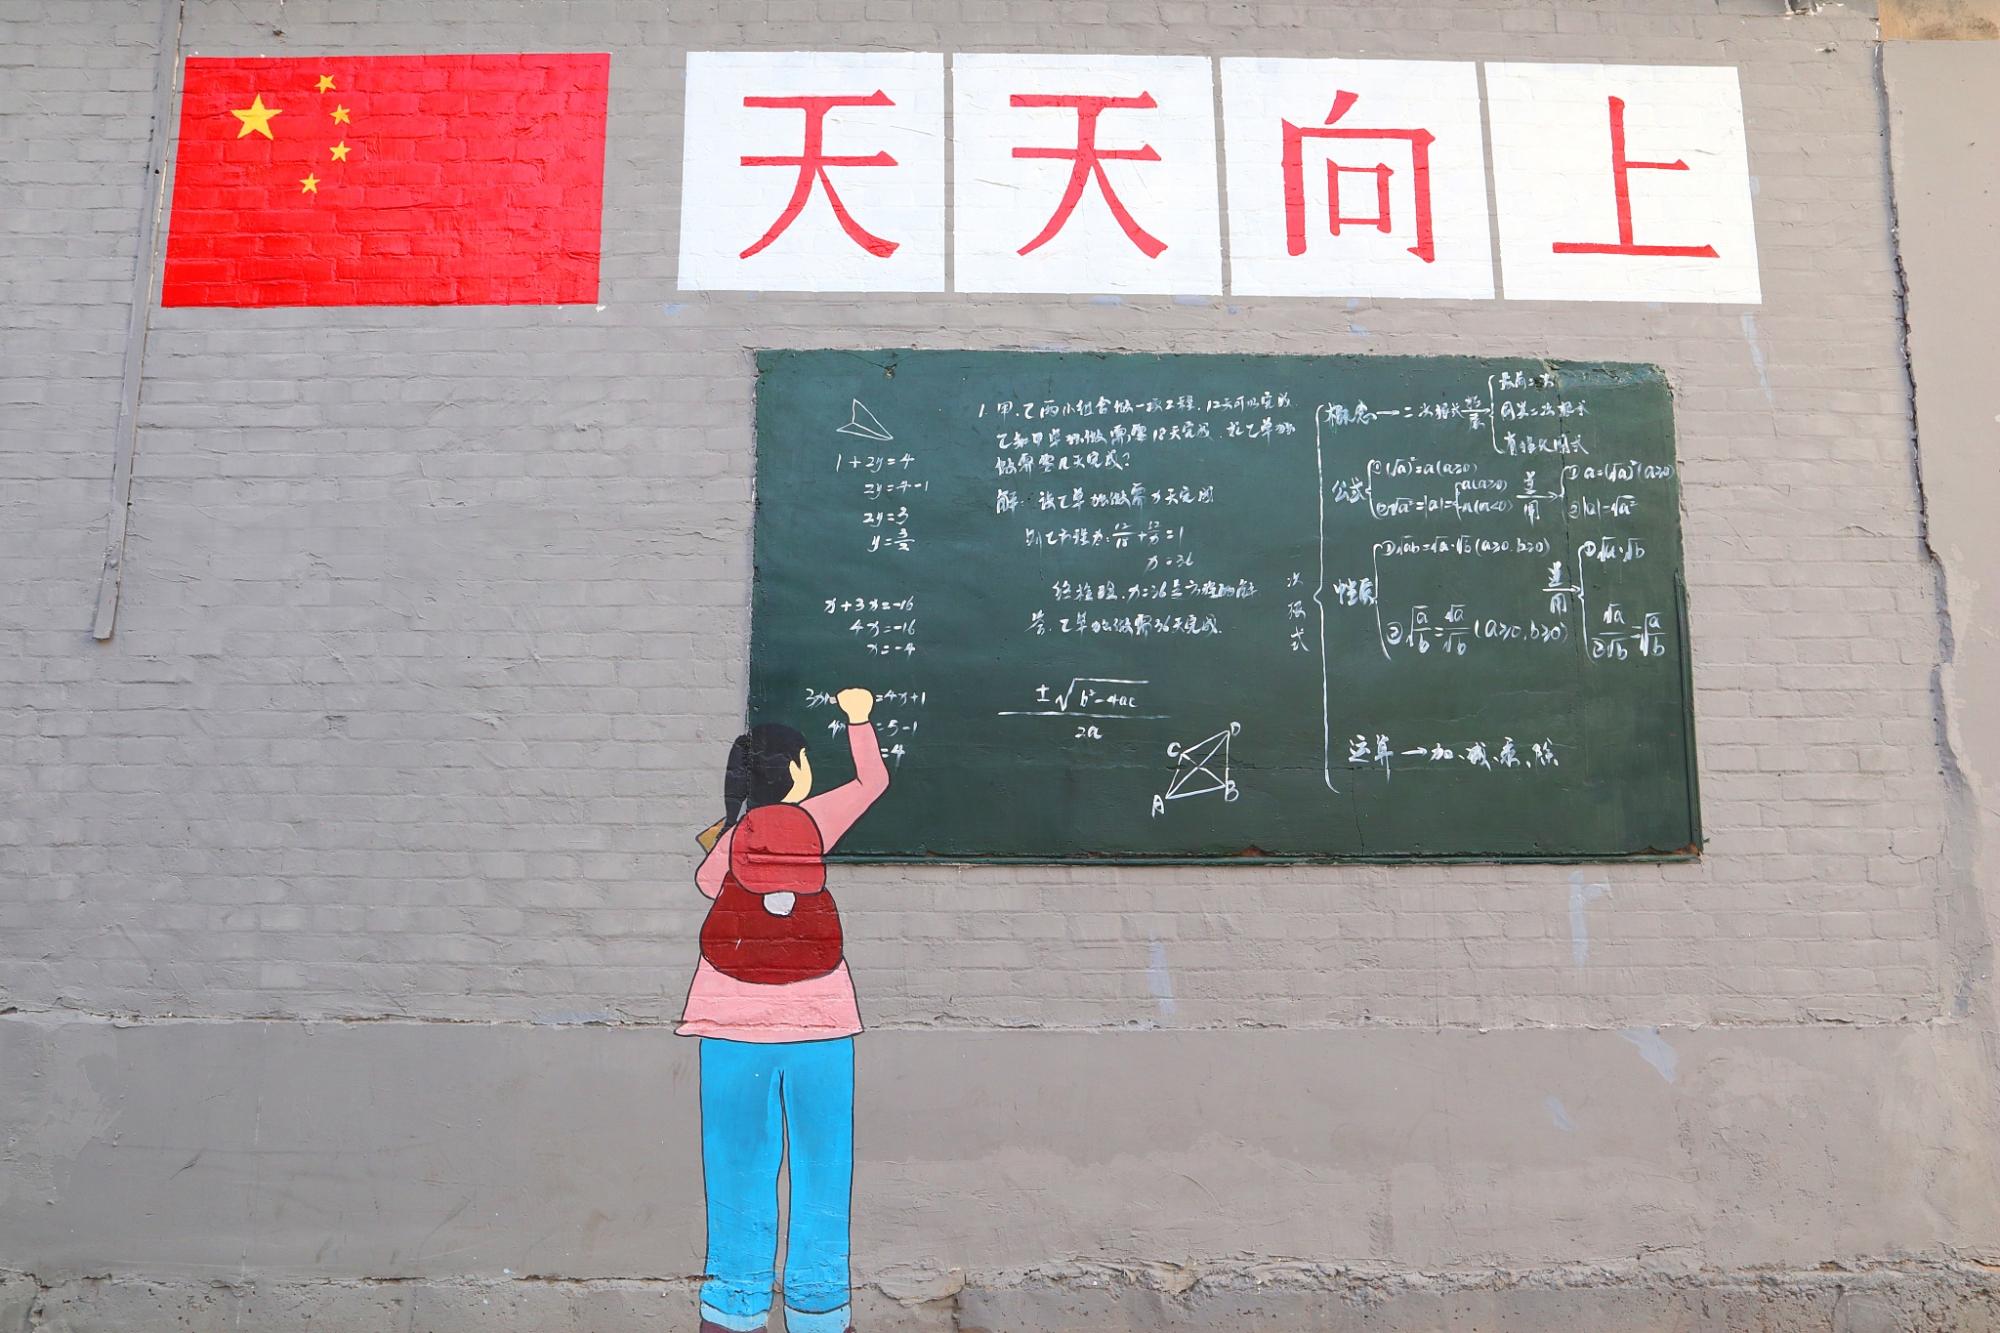 天天向上
1+2y=4
2y=4-1
2y=3
y=3/2
x+3x=-16
4x=-16
x=-4
=4x+1
=5-1
=4
1.甲、乙两小组合做一项工程,12天可以完成,
已知甲单独做需要18天完成,求乙单独
做需要几天完成?
解:设乙单独做需x天完成
则乙方程为:12/18+12/x=1
x=36
经检验,x=36是方程的解
答:乙单独做需36天完成.
±√(b²-4ac)
2a
C D
A B
次根式
概念→二次根式
最简二次
同类二次根式
有理化因式
公式
①(√a)²=a(a≥0)
②√a²=|a|=
a(a≥0)
-a(a<0)
逆用
①a=(√a)²(a≥0)
②|a|=√a²
性质
①√ab=√a·√b(a≥0,b≥0)
②√a/b=√a/√b(a≥0,b≥0)
逆用
①√a·√b
②√a/√b=√a/b
运算→加、减、乘、除